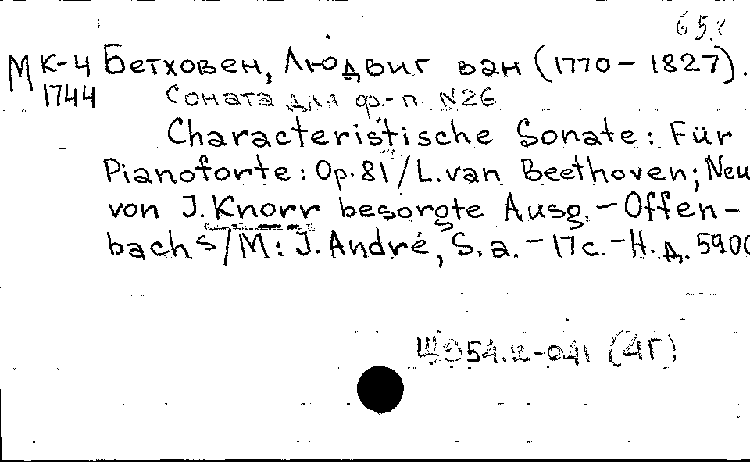 65.8
М К-4 Бетховен, Людвиг ван (1770-1827).
1744 Соната для ф-п. N26
Characteristische Sonate: Für
Pianoforte: Op. 81 / L. van Beethoven; Neu
von J. Knorr besorgte Ausg. - Offen-
bach s/M: J. André, S. a. - 17 c. - Н. д. 5900
Щ954.2-041 (4Г)